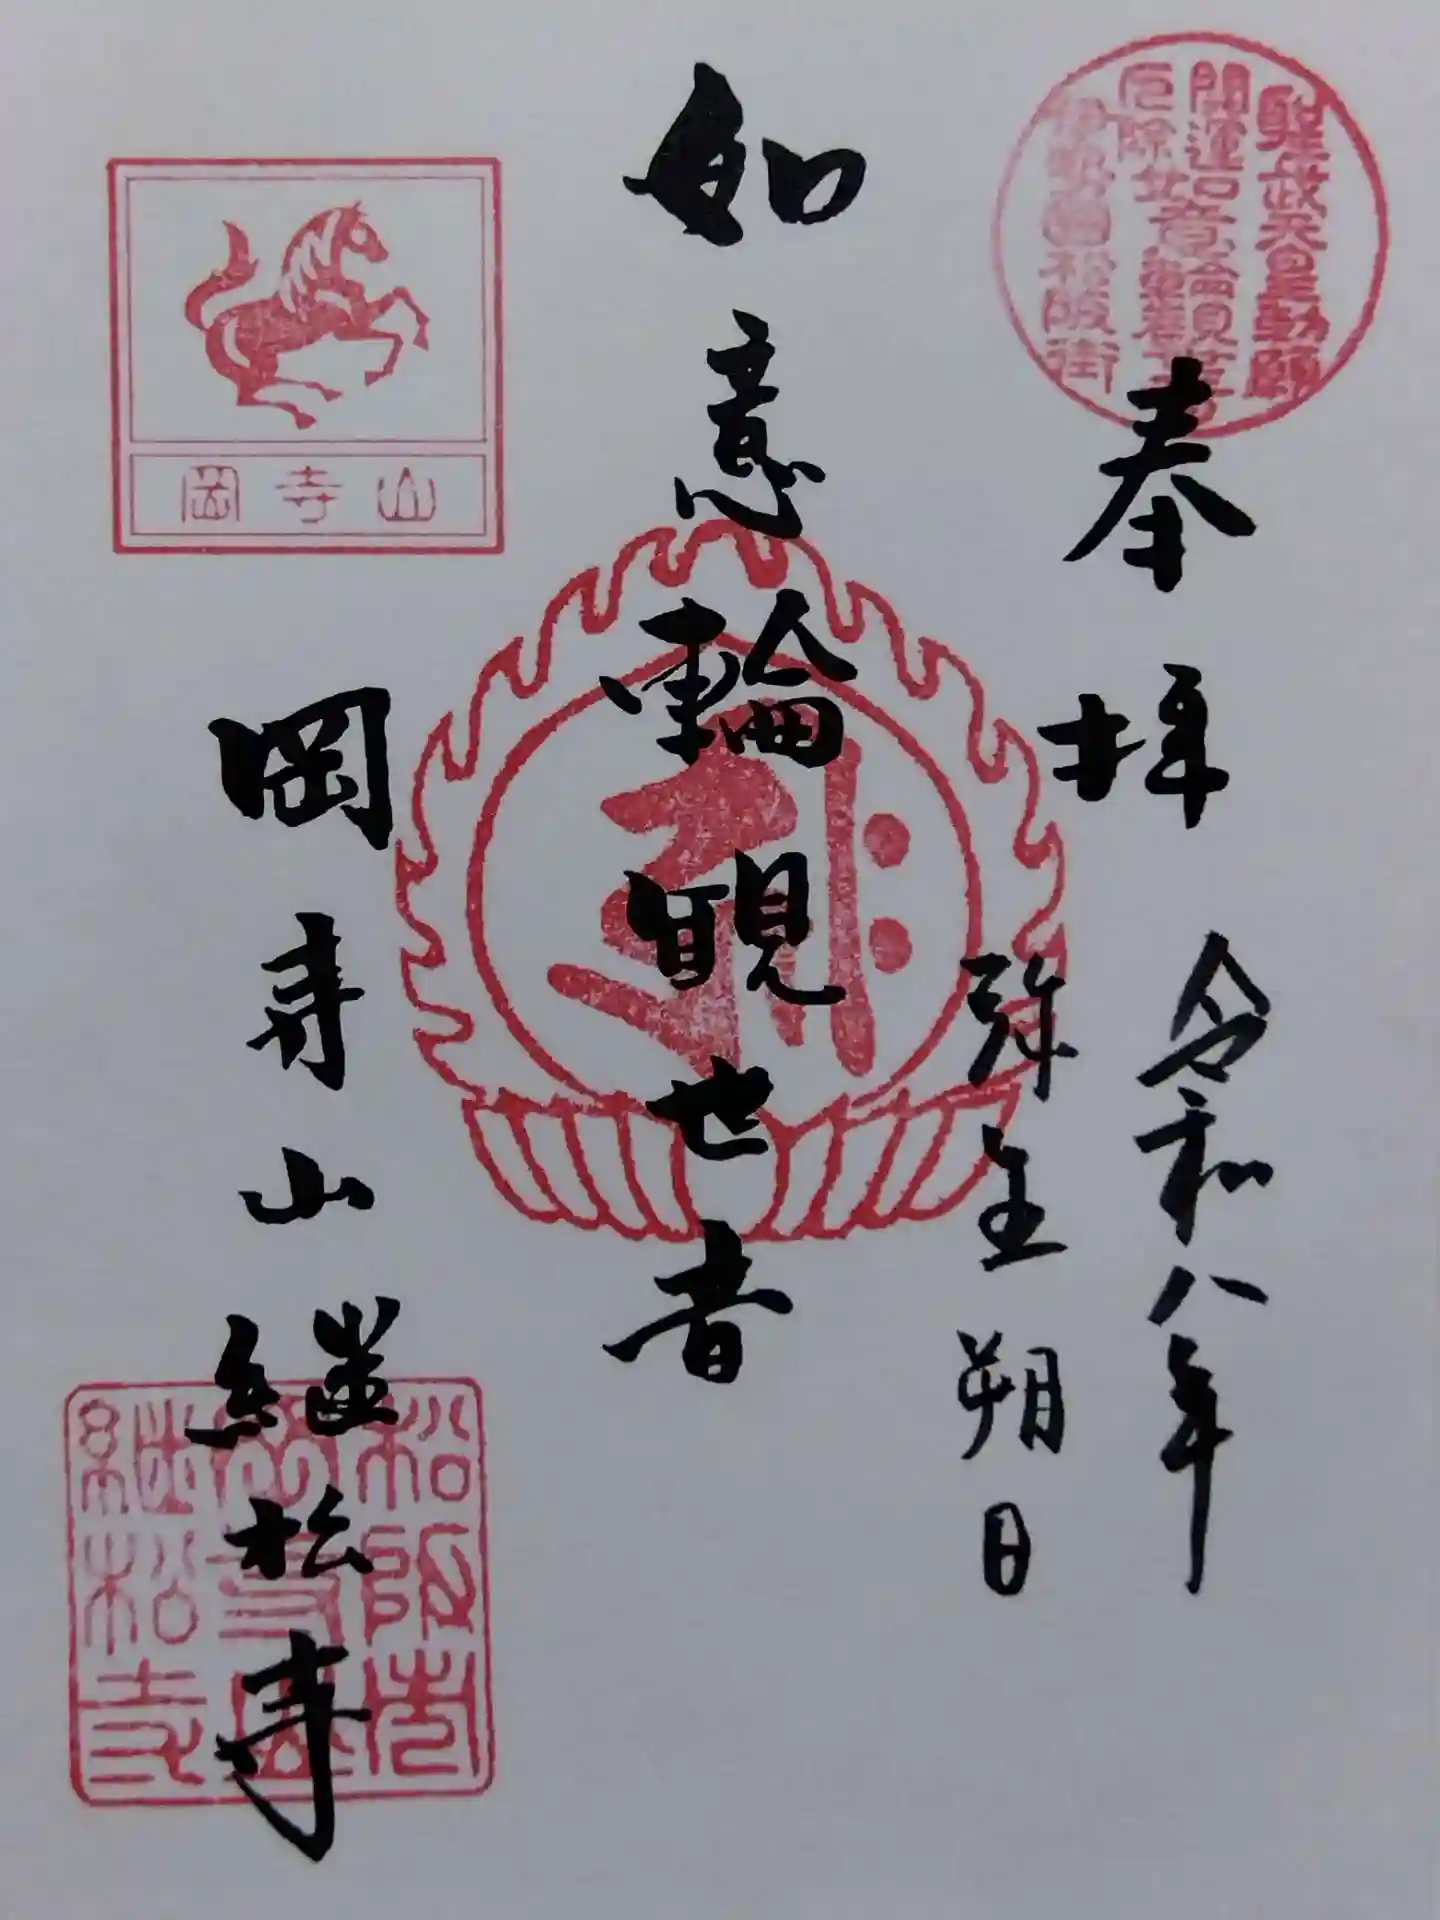 聖武天皇勅願
開運如意輪観世音
厄除
伊勢國松阪街
奉拝
令和八年
弥生朔日
如意輪観世音
岡寺山
岡寺山継松寺
松阪市
岡寺山
継松寺